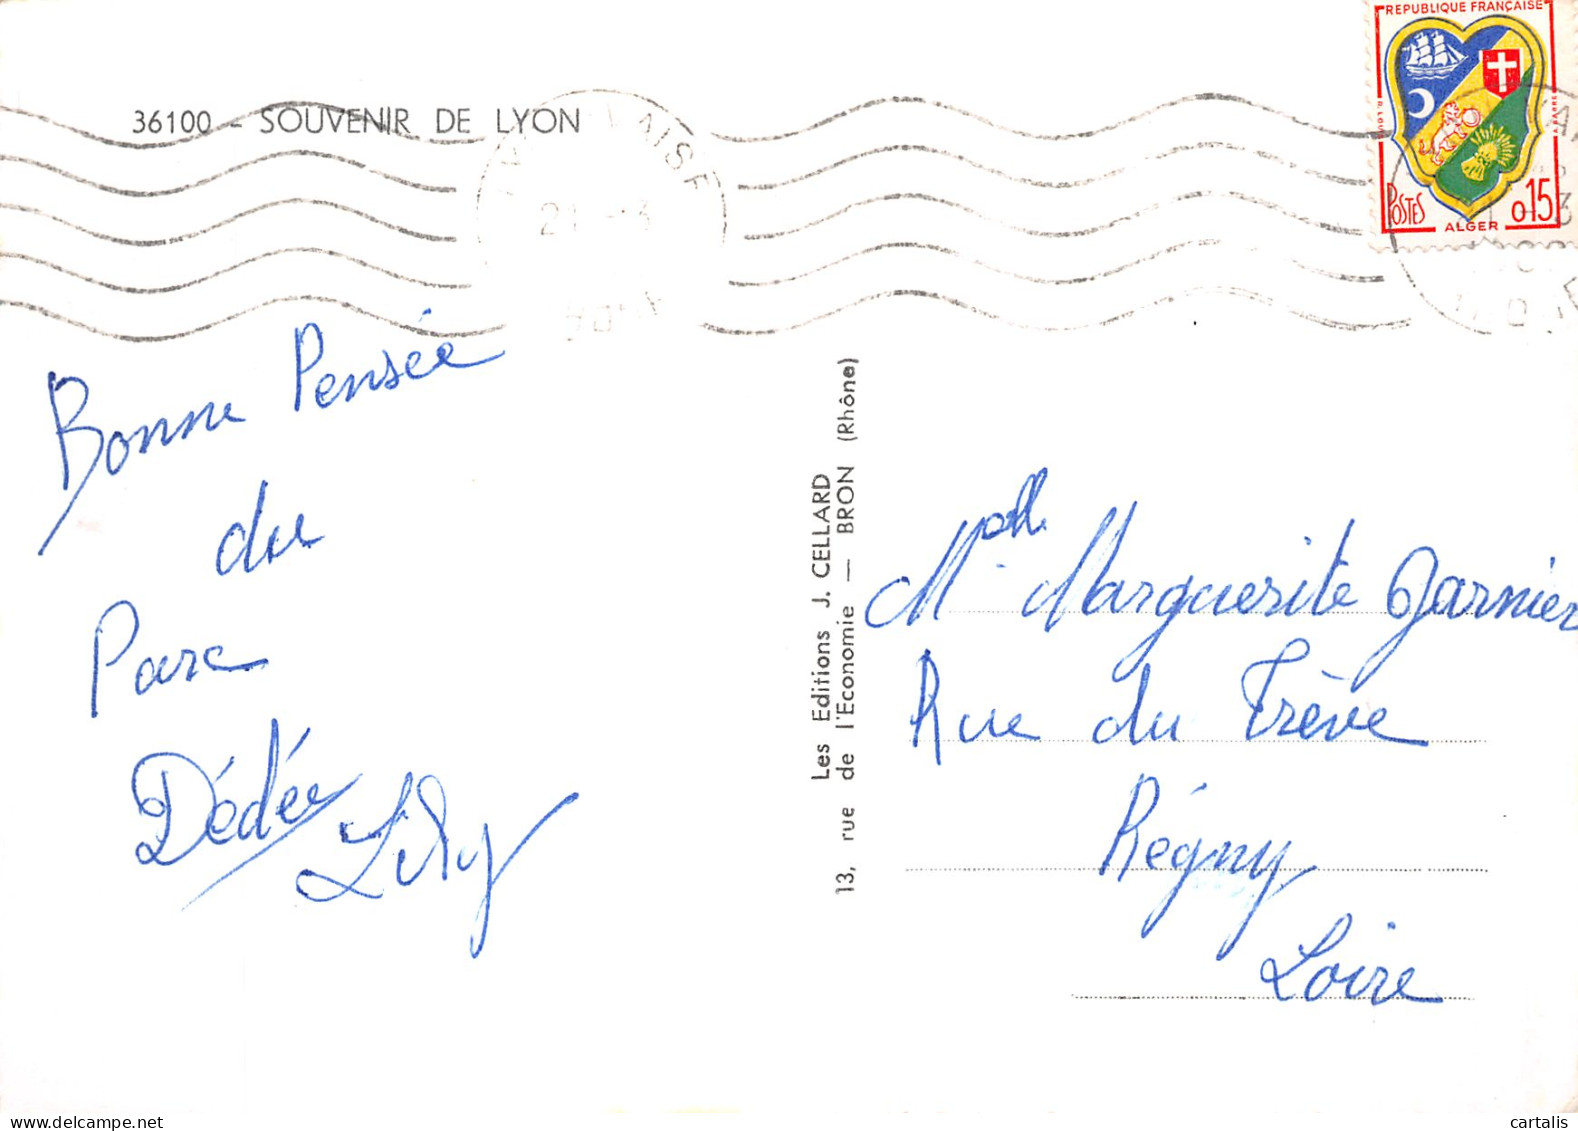 36100 - SOUVENIR DE LYON
REPUBLIQUE FRANÇAISE
POSTES
0,15
ALGER
VAISE
21
Bonne Pensée
du
Parc
Dédée
Lily
Les Editions J. CELLARD
13, rue de l'Economie — BRON (Rhône)
Melle Marguerite Garnier
Rue du Trève
Régny
Loire
cartalis